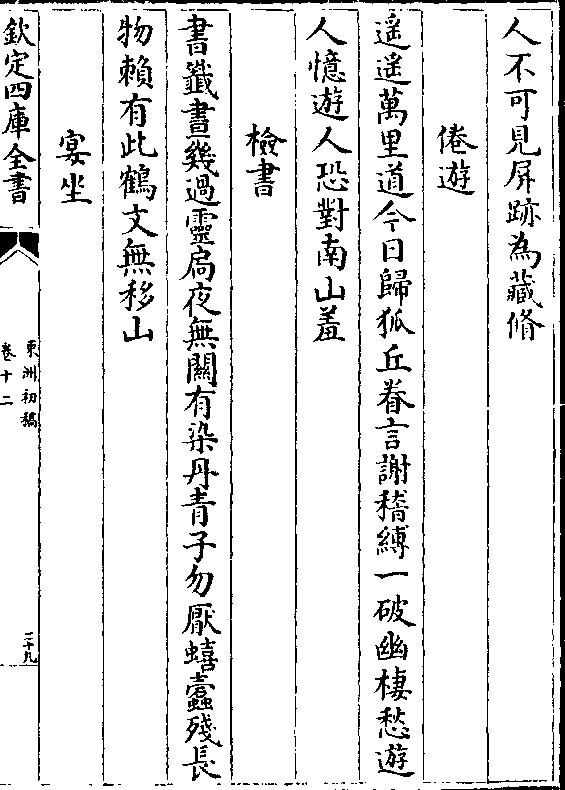 人不可見屏跡為藏脩
倦遊
遥遥萬里道今日歸狐丘眷言謝稽縛一破幽棲愁遊
人憶遊人恐對南山羞
檢書
書籤晝幾過靈扃夜無關有染丹青子勿厭蟢蠧殘長
物賴有此鶴文無移山
宴坐
欽定四庫全書
東洲初稿
卷十二
二十九